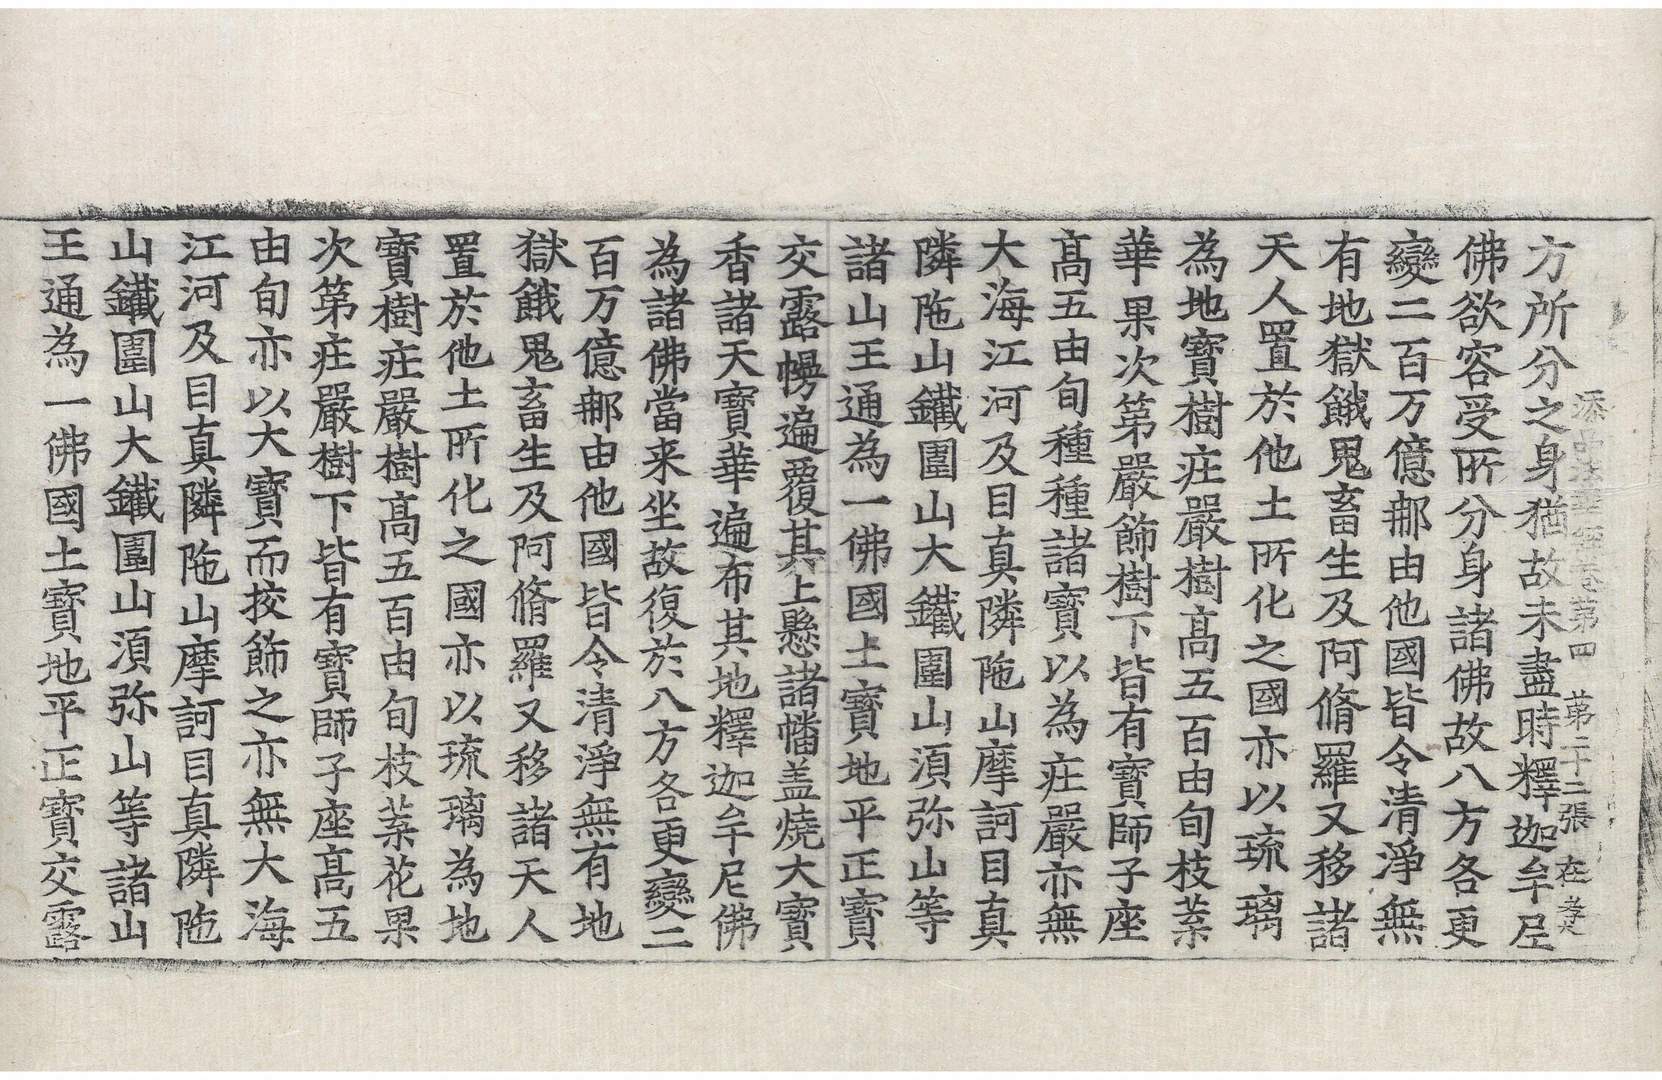 添品法華經卷第四　第二十二張　在
方所分之身猶故未盡時釋迦牟尼
佛欲容受所分身諸佛故八方各更
變二百万億那由他國皆令清淨無
有地獄餓鬼畜生及阿脩羅又移諸
天人置於他土所化之國亦以琉璃
為地寶樹庄嚴樹髙五百由旬枝葉
華果次第嚴飾樹下皆有寶師子座
髙五由旬種種諸寶以為庄嚴亦無
大海江河及目真隣陁山摩訶目真
隣陁山鐵圍山大鐵圍山須弥山等
諸山王通為一佛國土寶地平正寶
交露幔遍覆其上懸諸幡盖燒大寶
香諸天寶華遍布其地釋迦牟尼佛
為諸佛當来坐故復於八方各更變二
百万億那由他國皆令清淨無有地
獄餓鬼畜生及阿脩羅又移諸天人
置於他土所化之國亦以琉璃為地
寶樹庄嚴樹髙五百由旬枝葉花果
次第庄嚴樹下皆有寶師子座髙五
由旬亦以大寶而挍飾之亦無大海
江河及目真隣陁山摩訶目真隣陁
山鐵圍山大鐵圍山須弥山等諸山
王通為一佛國土寶地平正寶交露